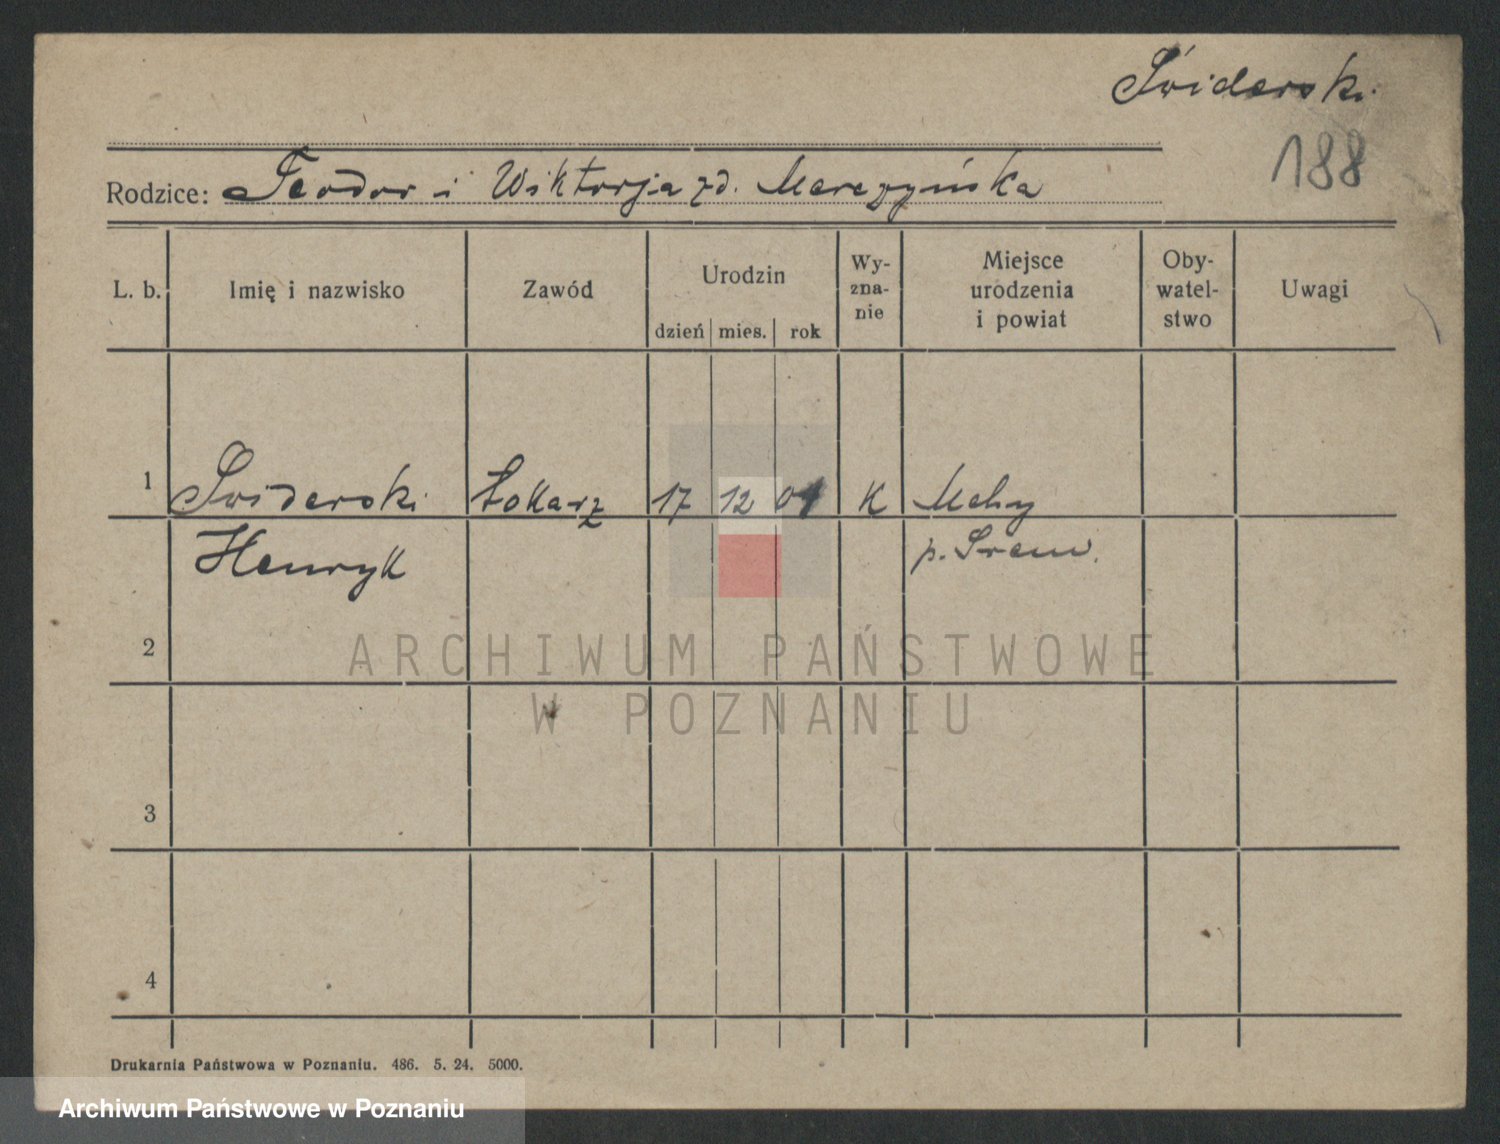 Świderski
188
Rodzice: Teodor i Wiktorja zd. Marczyńska
L. b. Imię i nazwisko Zawód Urodzin dzień mies. rok Wy-zna-nie Miejsce urodzenia i powiat Oby-watel-stwo Uwagi
1 Świderski Tokarz 17 12 01 K Mchy
Henryk p. Śrem.
2
ARCHIWUM PAŃSTWOWE
W POZNANIU
3
4
Drukarnia Państwowa w Poznaniu. 486. 5. 24. 5000.
Archiwum Państwowe w Poznaniu